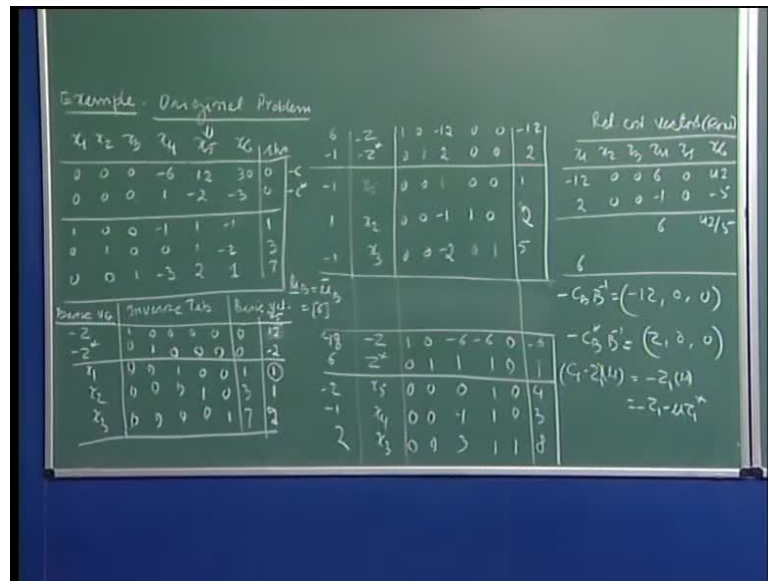 Example. Original Problem
x1 x2 x3 x4 x5 x6 rhs
0 0 0 -6 12 30 0 -c
0 0 0 1 -2 -3 0 -c*
1 0 0 -1 1 -1 1
0 1 0 0 1 -2 3
0 0 1 -3 2 1 7
Basic Inverse Tab Basic
-z 1 0 0 0 0 0 12
-z* 0 1 0 0 0 0 -2
x1 0 0 1 0 0 1 1
x2 0 0 0 1 0 3 1
x3 0 0 0 0 1 7 2
= [6]
6 -z 1 0 -12 0 0 -12
-1 -z* 0 1 2 0 0 2
-1 0 0 1 0 0 1
1 x2 0 0 -1 1 0 2
-1 x3 0 0 -2 0 1 5
48 -z 1 0 -6 -6 0
6 z* 0 1 1 1 0 1
-2 x5 0 0 0 1 0 4
-1 x4 0 0 -1 1 0 3
2 x3 0 0 3 1 1 8
Rel cost vectors (Row)
x1 x2 x3 x4 x5 x6
-12 0 0 6 0 42
2 0 0 -1 0 -5
6 42/5
6
-C_B B^-1 = (-12, 0, 0)
-C*_B B^-1 = (2, 0, 0)